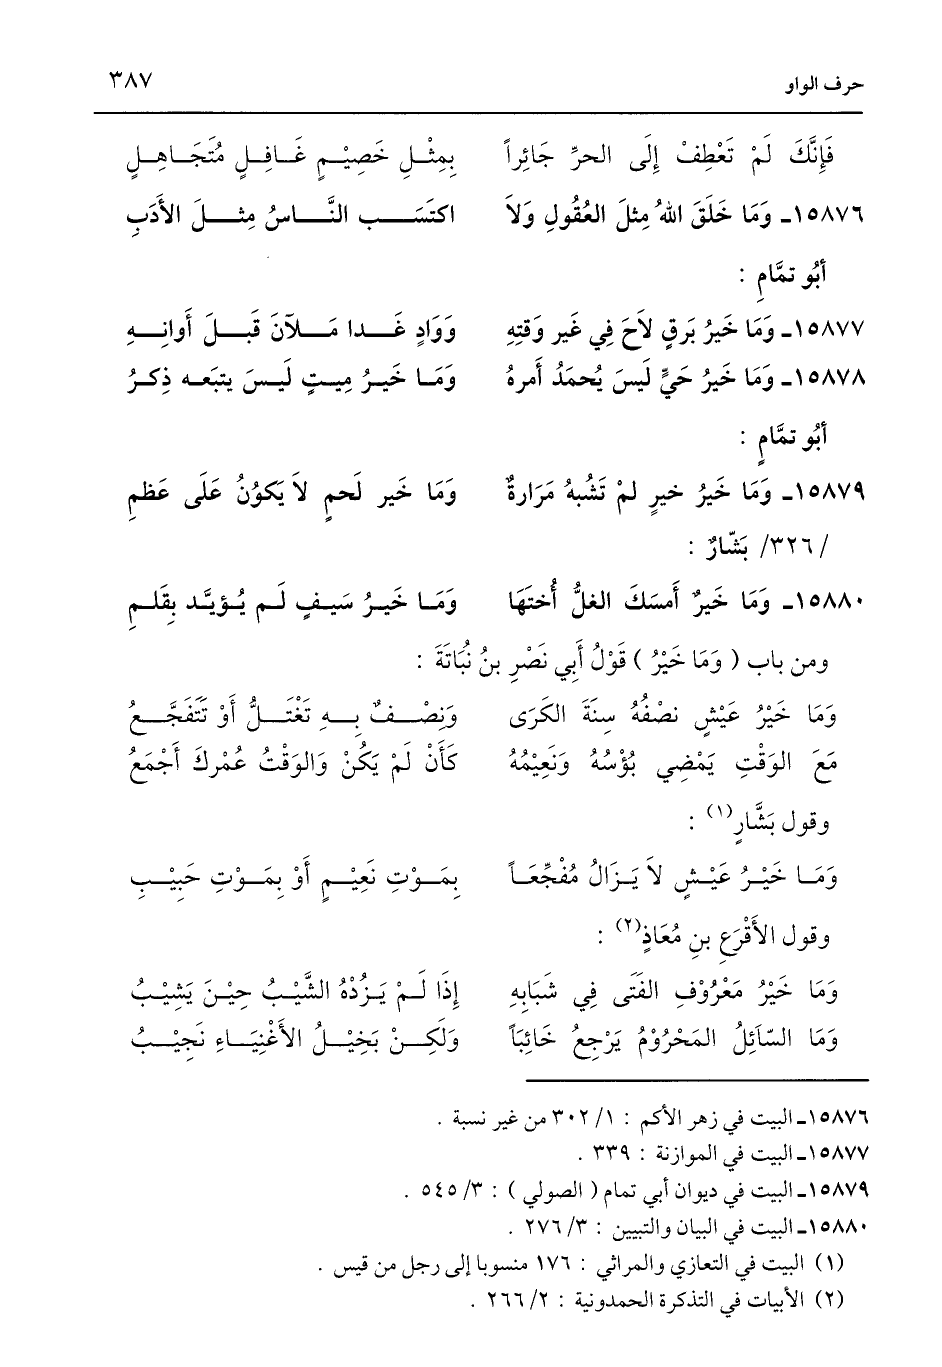 حرف الواو ٣٨٧
فَإِنَّكَ لَمْ تَعْطِفْ إِلَى الحرِّ جَائِراً بِمِثْلِ خَصِيْمٍ غَافِلٍ مُتَجَاهِلٍ
١٥٨٧٦ـ وَمَا خَلَقَ اللهُ مِثلَ العُقُولِ وَلاَ اكتَسَب النَّاسُ مِثلَ الأَدَبِ
أبُو تمَّامٍ :
١٥٨٧٧ـ وَمَا خَيرُ بَرقٍ لاَحَ فِي غَير وَقتِهِ وَوَادٍ غَدا مَلآنَ قَبلَ أوانِهِ
١٥٨٧٨ـ وَمَا خَيرُ حَيٍّ لَيسَ يُحمَدُ أمرهُ وَمَا خَيرُ مِيتٍ لَيسَ يتبَعه ذِكرُ
أبُو تمَّامٍ :
١٥٨٧٩ـ وَمَا خَيرُ خيرٍ لمْ تَشُبهُ مَرَارةٌ وَمَا خَير لَحمٍ لاَ يَكوُنُ عَلَى عَظمِ
/٣٢٦/ بَشّارٌ :
١٥٨٨٠ـ وَمَا خَيرٌ أمسَكَ الغلُّ أُختَهَا وَمَا خَيرُ سَيفٍ لَم يُؤيَّد بِقَلمِ
ومن باب ( وَمَا خَيْرُ ) قَوْلُ أَبِي نَصْرِ بنُ نُبَاتَةَ :
وَمَا خَيْرُ عَيْشٍ نصْفُهُ سِنَةَ الكَرَى وَنِصْفٌ بِهِ تَعْتَلُّ أَوْ تَتَفَجَّعُ
مَعَ الوَقْتِ يَمْضِي بُؤْسُهُ وَنَعِيْمُهُ كَأَنْ لَمْ يَكُنْ وَالوَقْتُ عُمْركَ أجْمَعُ
وقول بَشَّارٍ(١) :
وَمَا خَيْرُ عَيْشٍ لاَ يَزَالُ مُفْجِّعَاً بِمَوْتِ نَعِيْمٍ أَوْ بِمَوْتِ حَبِيْبِ
وقول الأَقْرَعِ بنِ مُعَاذٍ(٢) :
وَمَا خَيْرُ مَعْرُوْفِ الفَتَى فِي شَبَابِهِ إِذَا لَمْ يَزُدْهُ الشَّيْبُ حِيْنَ يَشِيْبُ
وَمَا السَّاَئِلُ المَحْرُوْمُ يَرْجِعُ خَائِبَاً وَلَكِنْ بَخِيْلُ الأَغْنِيَاءِ نَجِيْبُ
١٥٨٧٦ـ البيت في زهر الأكم : ١/ ٣٠٢ من غير نسبة .
١٥٨٧٧ـ البيت في الموازنة : ٣٣٩ .
١٥٨٧٩ـ البيت في ديوان أبي تمام ( الصولي ) : ٣/ ٥٤٥ .
١٥٨٨٠ـ البيت في البيان والتبيين : ٣/ ٢٧٦ .
(١) البيت في التعازي والمراثي : ١٧٦ منسوبا إلى رجل من قيس .
(٢) الأبيات في التذكرة الحمدونية : ٢/ ٢٦٦ .